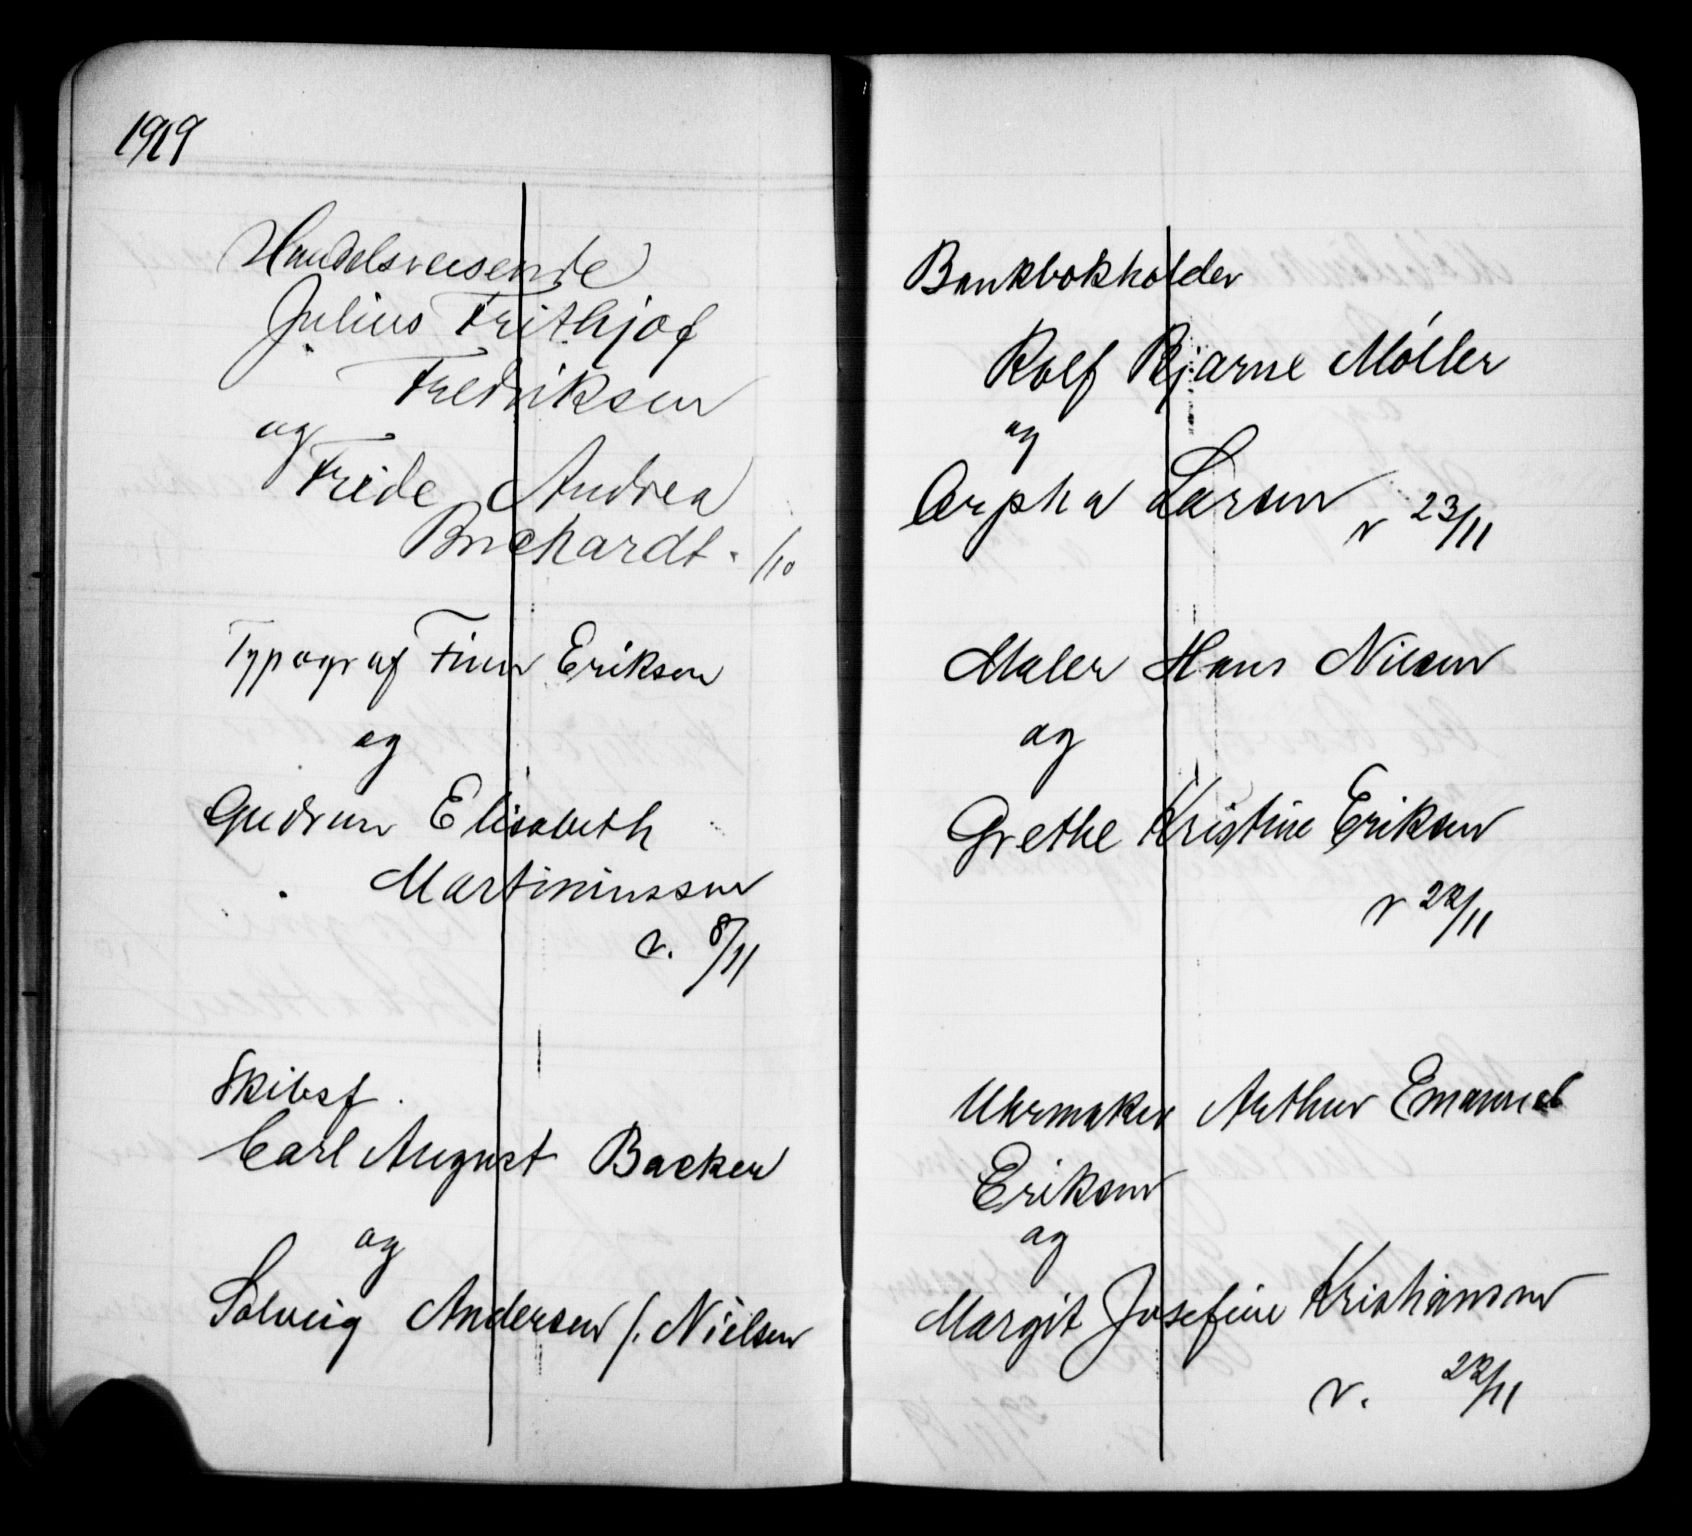 1919
Handelsreisende
Julius Frithjof
Fredriksen
og
Fride Andrea
Buchardt. /10
Typograf Finn Eriksen
og
Gudrun Elisabeth
Martininssen
v. 8/11
Skibsf.
Carl August Backer
og
Solveig Andersen f. Nielsen
Bankbokholder
Rolf Bjarne Møller
og
Orpha Larsen v 23/11
Maler Hans Nilsen
og
Grethe Kristine Eriksen
v 22/11
Uhrmaker Arthur Emanuel
Eriksen
og
Margit Josefine Kristiansen
v. 22/11